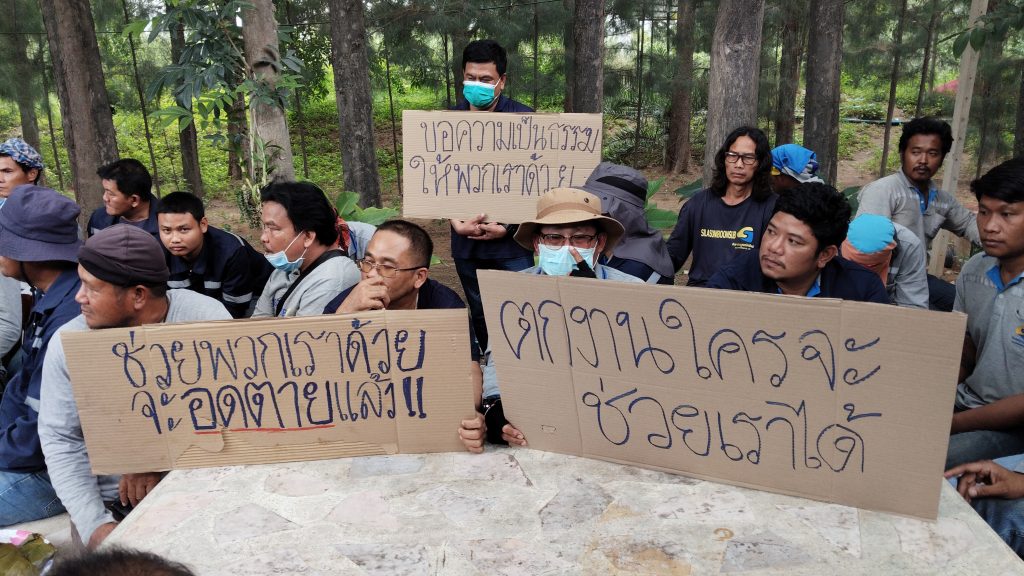 ขอความเป็นธรรม
ให้พวกเราด้วย
ช่วยพวกเราด้วย
จะอดตายแล้ว!!
ตกงานใครจะ
ช่วยเราได้
SILASINBOONSUB